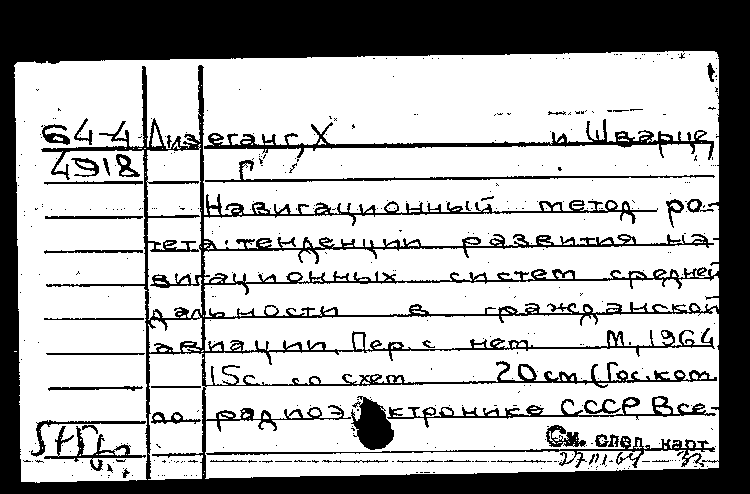 64-4 Лизеганг, Х и Шварце,
4918 Г
Навигационный метод ро-
тета: тенденции развития на-
вигационных систем средней
дальности в гражданской
авиации. Пер. с нем. М., 1964
15с. со схем. 20 см. (Гос. ком.
по радиоэлектронике СССР. Все-
См. след. карт.
27 III. 64 32